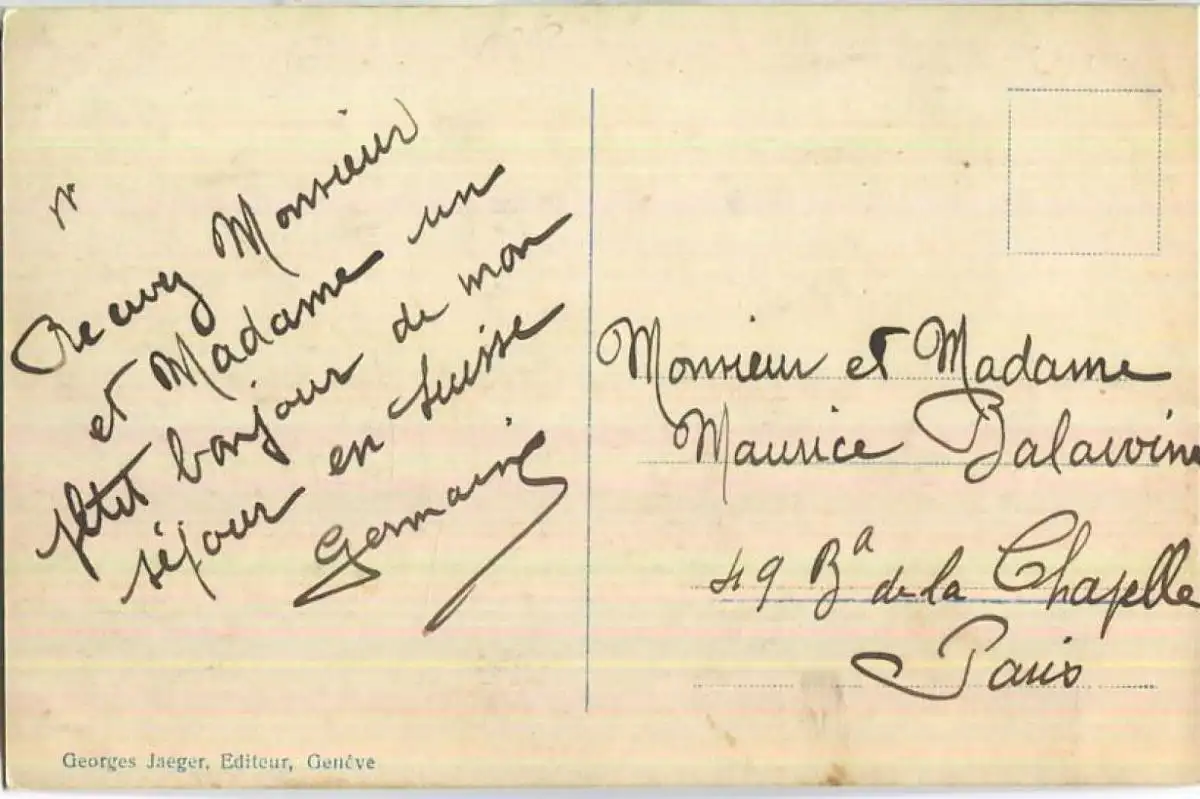 Recevez Monsieur
et Madame un
petit bonjour de mon
séjour en Suisse
Germaine
Monsieur et Madame
Maurice Balavoine
49 Bd de la Chapelle
Paris
Georges Jaeger, Editeur, Genève